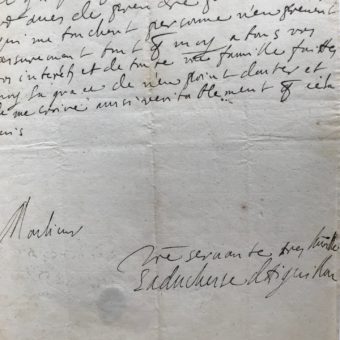 qui me touchent personne n'en prenent
assurement tout & moy a tous vos
interest et de toute vre famille faittes
moy la grace de n'en point douter et
de me croire aussi veritablement & cela
suis
Monsieur
vre servante tres humble
La duchesse d'Eguillon